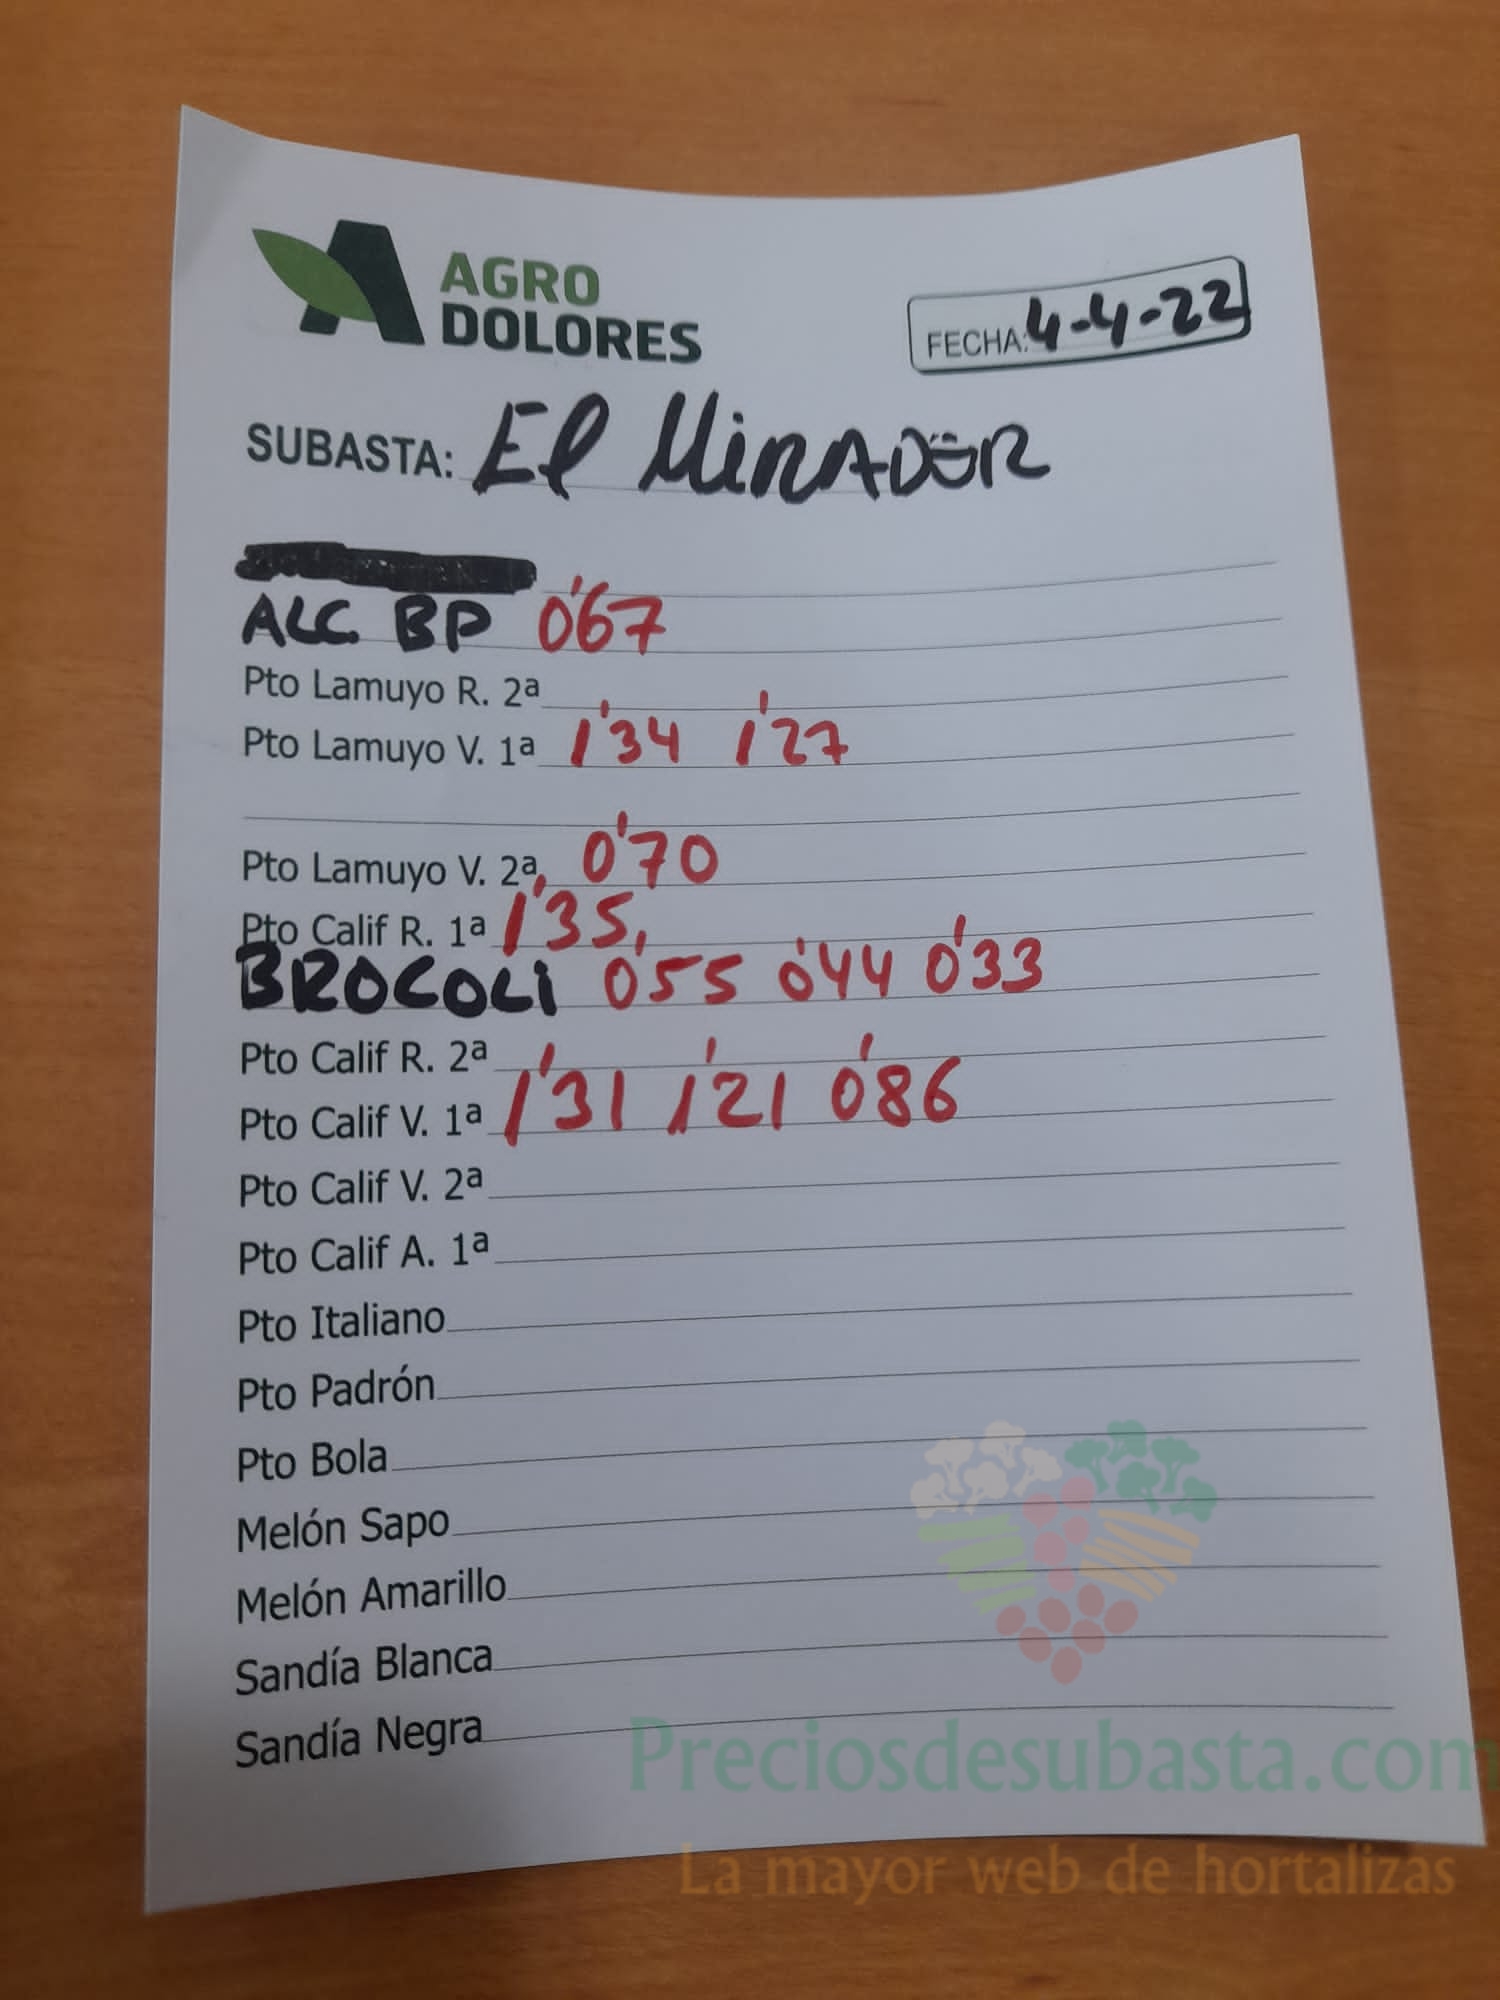 AGRO
DOLORES
FECHA: 4-4-22
SUBASTA: El MiRADOR
ALC. BP 0'67
Pto Lamuyo R. 2ª
Pto Lamuyo V. 1ª 1'34 1'27
Pto Lamuyo V. 2ª 0'70
Pto Calif R. 1ª 1'35,
BROCOLi 0'55 0'44 0'33
Pto Calif R. 2ª
Pto Calif V. 1ª 1'31 1'21 0'86
Pto Calif V. 2ª
Pto Calif A. 1ª
Pto Italiano
Pto Padrón
Pto Bola
Melón Sapo
Melón Amarillo
Sandía Blanca
Sandía Negra
Preciosdesubasta.com
La mayor web de hortalizas